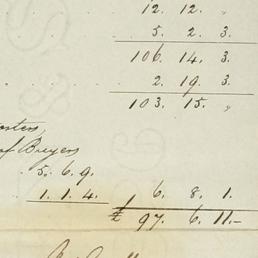 12. 12. „
5. 2. 3.
106. 14. 3
2. 19. 3
103. 15. „
of Buyers
5. 6. 9.
1. 1. 4. 6. 8. 1.
£ 97. 6. 11.-